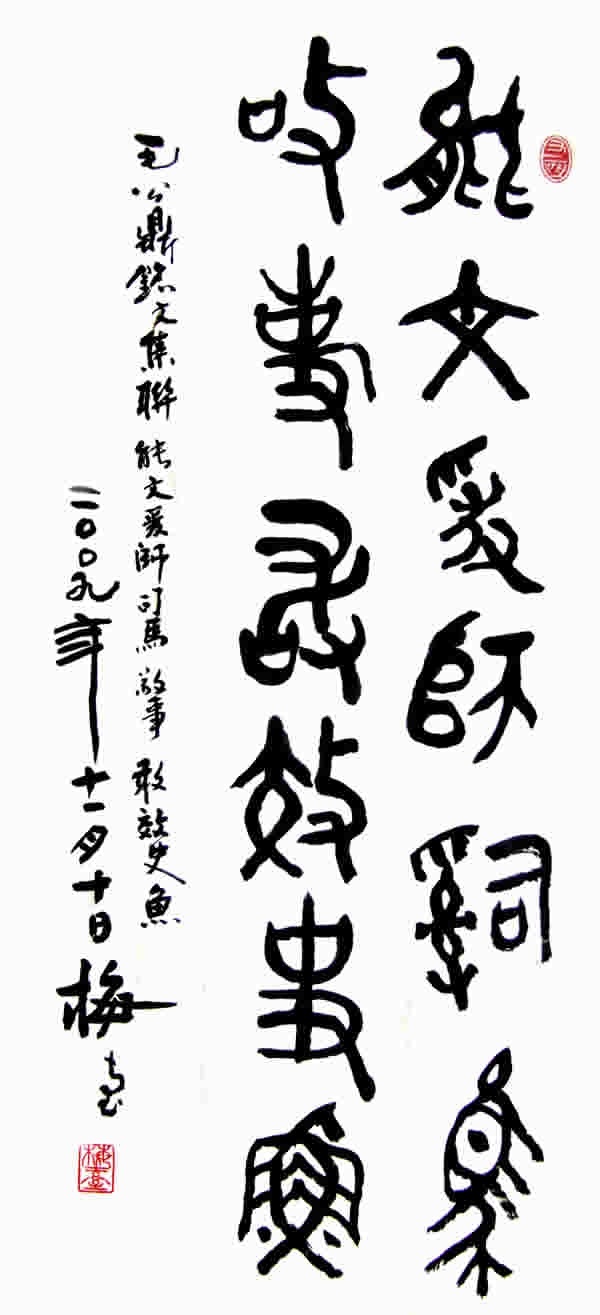 能文爰師𤔲馬
敬事敢效史魚
毛公鼎銘文集聯 能文爰師司馬 敬事 敢效史魚
二〇〇九年十一月十日 梅